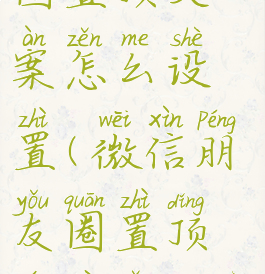 àn zěn me shè
案怎么设
zhì wēi xìn Péng
置(微信朋
yǒu quān zhì dǐng
友圈置顶